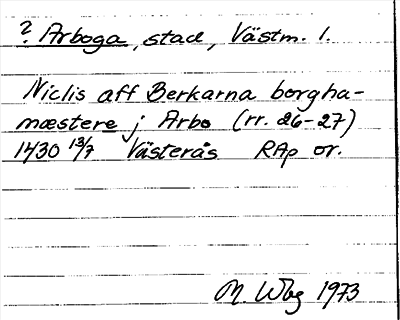 ? Arboga, stad, Västm. l.
Niclis aff Berkarna borgha-
mæstere j Arbo (rr. 26-27)
1430 13/7 Västerås RAp or.
M. Wbg 1973